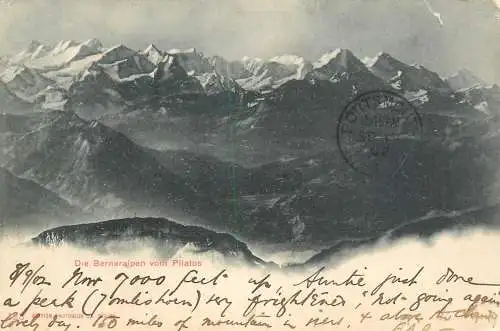 PORTSM
Die Berneralpen vom Pilatus
8/9/02 Now 7000 feet up. Auntie just done
a peak (Tomlishorn) very frightened, "not going again"
lovely day. 150 miles of mountain in view, & alone the